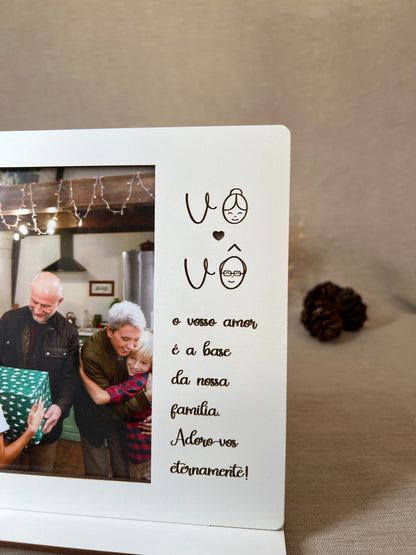 Vó
Vô
o vosso amor
é a base
da nossa
família.
Adoro-vos
eternamente!